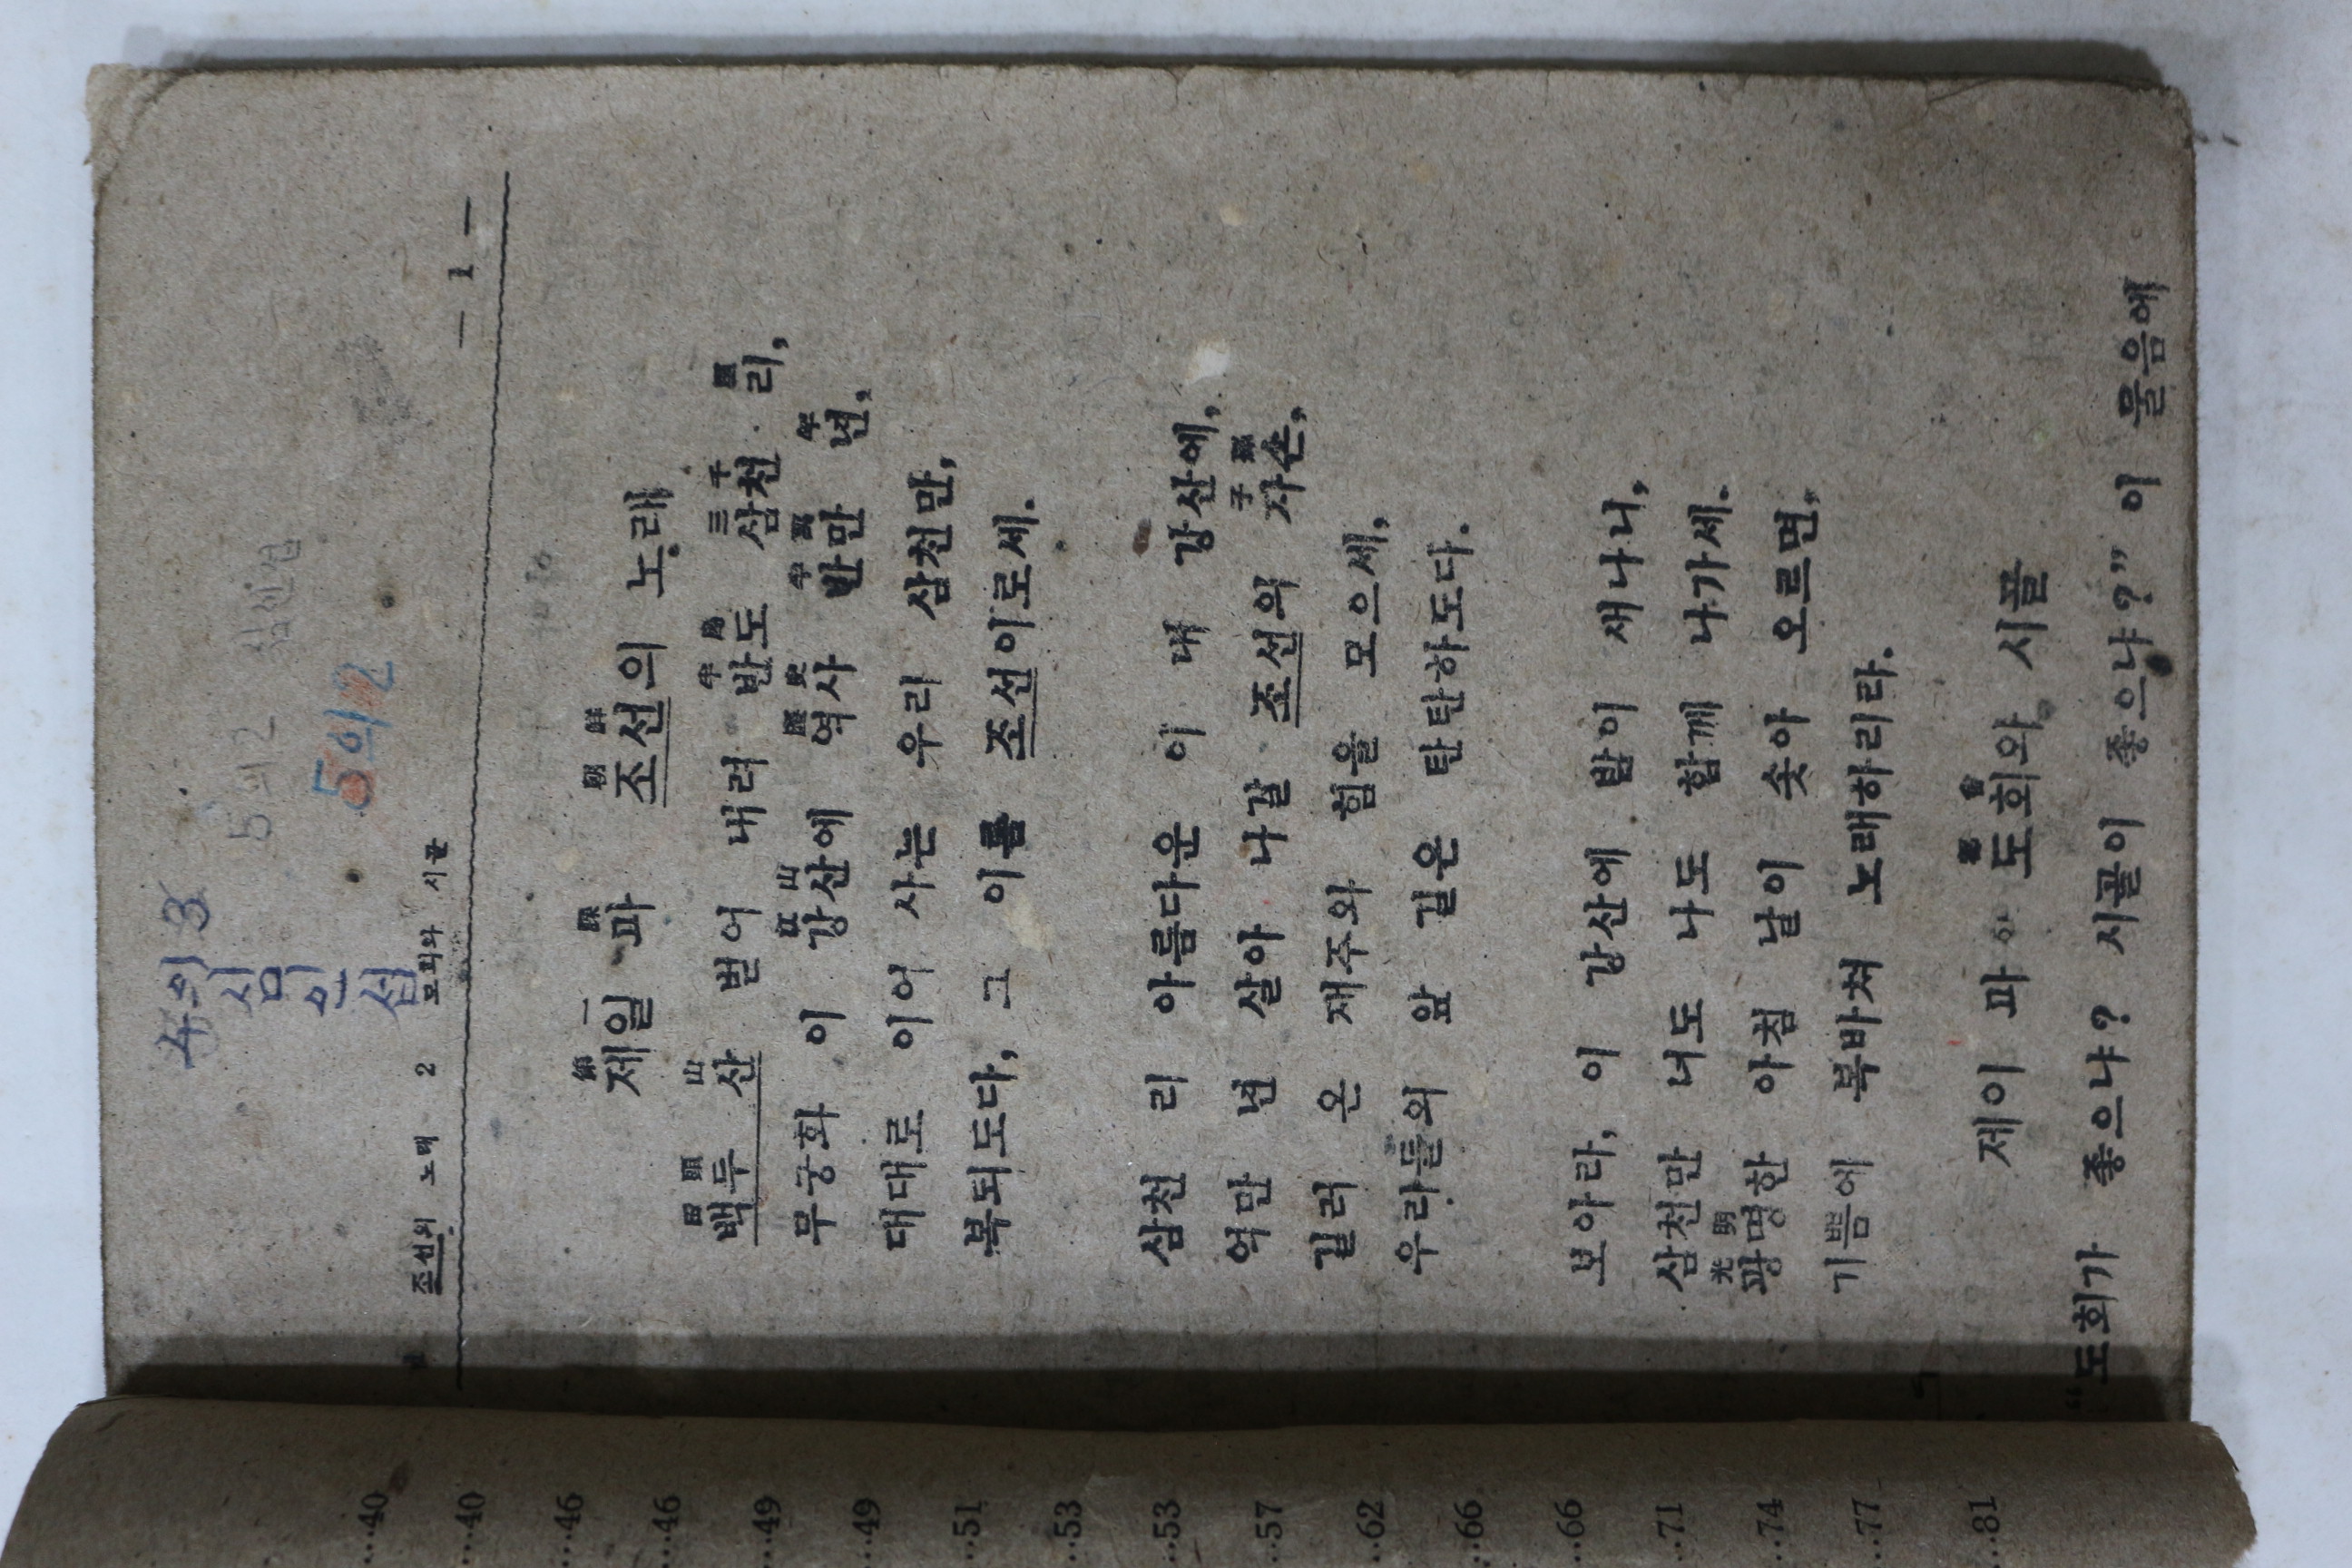 4의 3
심인섭
5의 2
5의 2
1 조선의 노래 2 도회와 시골
— 1 —
第一 課 朝鮮
제일 과 조선의 노래
白頭 山 半島 三千 里
백두 산 벋어 내려 반도 삼천 리,
江山 歷史 半萬 年
무궁화 이 강산에 역사 반만 년,
대대로 이어 사는 우리 삼천만,
복되도다, 그 이름 조선이로세.
삼천 리 아름다운 이 내 강산에,
子孫
억만 년 살아 나갈 조선의 자손,
길러 온 재주와 힘을 모으세,
우리들의 앞 길은 탄탄하도다.
보아라, 이 강산에 밤이 새나니,
삼천만 너도 나도 함께 나가세.
光明
광명한 아침 날이 솟아 오르면,
기쁨에 북바쳐 노래하리라.
都會
제이 과 도회와 시골
“도회가 좋으냐? 시골이 좋으냐?” 이 물음에
…40
…40
…46
…46
…49
…49
…51
…53
…53
…57
…62
…66
…66
…71
…74
…77
…81